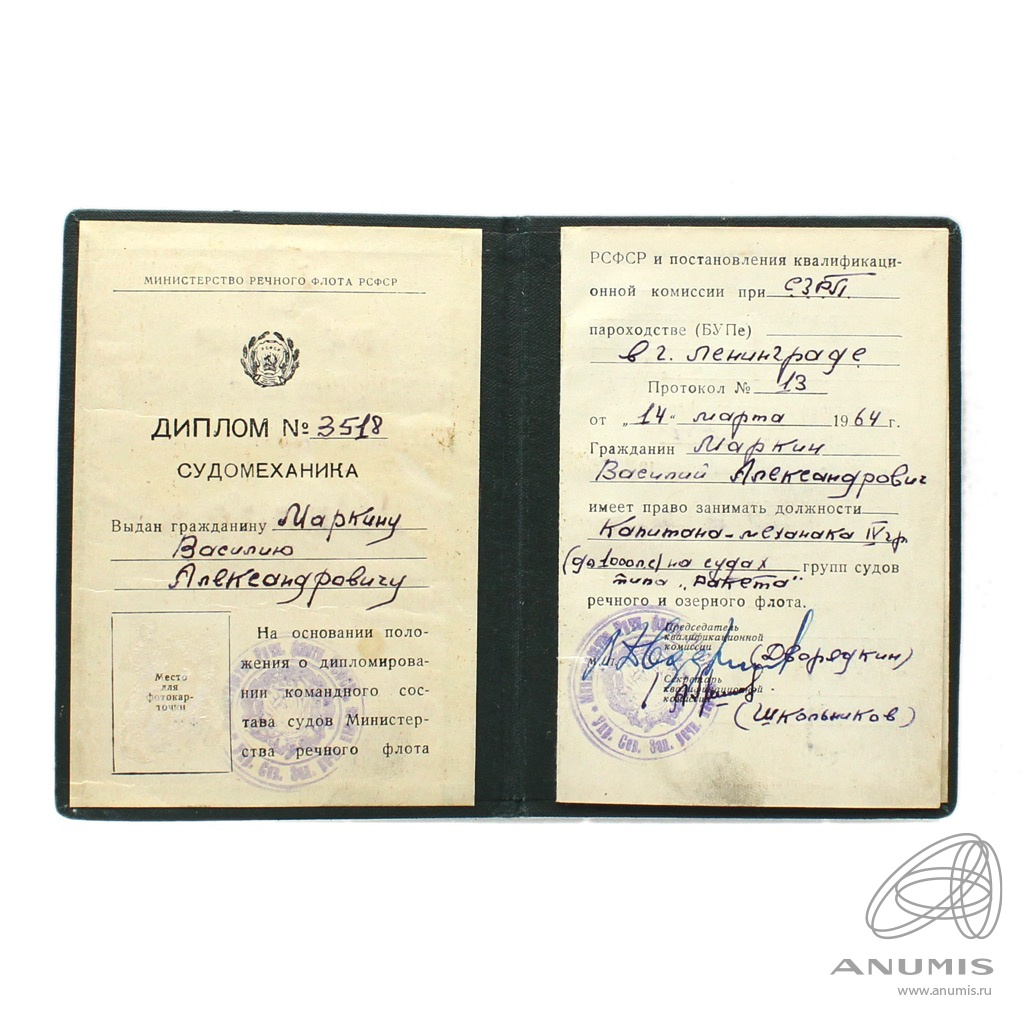 МИНИСТЕРСТВО РЕЧНОГО ФЛОТА РСФСР
ДИПЛОМ № 3518
СУДОМЕХАНИКА
Выдан гражданину Маркину
Василию
Александровичу
Место
для
фотокар-
точки
На основании поло-
жения о дипломирова-
нии командного сос-
тава судов Министер-
ства речного флота
РСФСР и постановления квалификаци-
онной комиссии при СЗРП
пароходстве (БУПе)
в г. Ленинграде
Протокол № 13
от „14“ марта 1964 г.
Гражданин Маркин
Василий Александрович
имеет право занимать должности
Капитана-механака IV гр.
(до 1000лс) на судах групп судов
типа „Ракета“
речного и озерного флота.
Председатель
квалификационной
комиссии
м.п.
(Дворядкин)
Секретарь
квалификационной
комиссии
(Школьников)
ANUMIS
www.anumis.ru